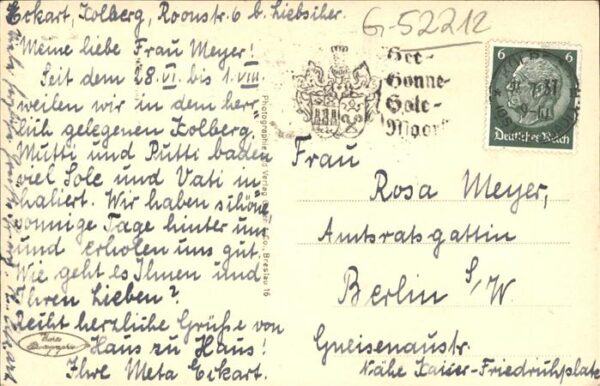 Eckart, Kolberg, Roonstr. 6 b. Liebsiher.
Meine liebe Frau Meyer!
Seit dem 28.VI. bis 1.VIII.
weilen wir in dem herr
lich gelegenen Kolberg.
Mutti und Putti baden
viel Sole und Vati in
haliert. Wir haben schöne
sonnige Tage hinter uns
und erholen uns gut.
Wie geht es Ihnen und
Ihren Lieben?
Recht herzliche Grüße von
Haus zu Haus!
Ihre Meta Eckart.
G-52212
See-
Sonne-
Sole-
Moor
6 6
Deutsches Reich
Frau
Rosa Meyer,
Amtsratsgattin
Berlin S/W.
Gneisenaustr.
Nähe Kaiser-Friedrichplatz
Photographie Verlag Co., Breslau 16